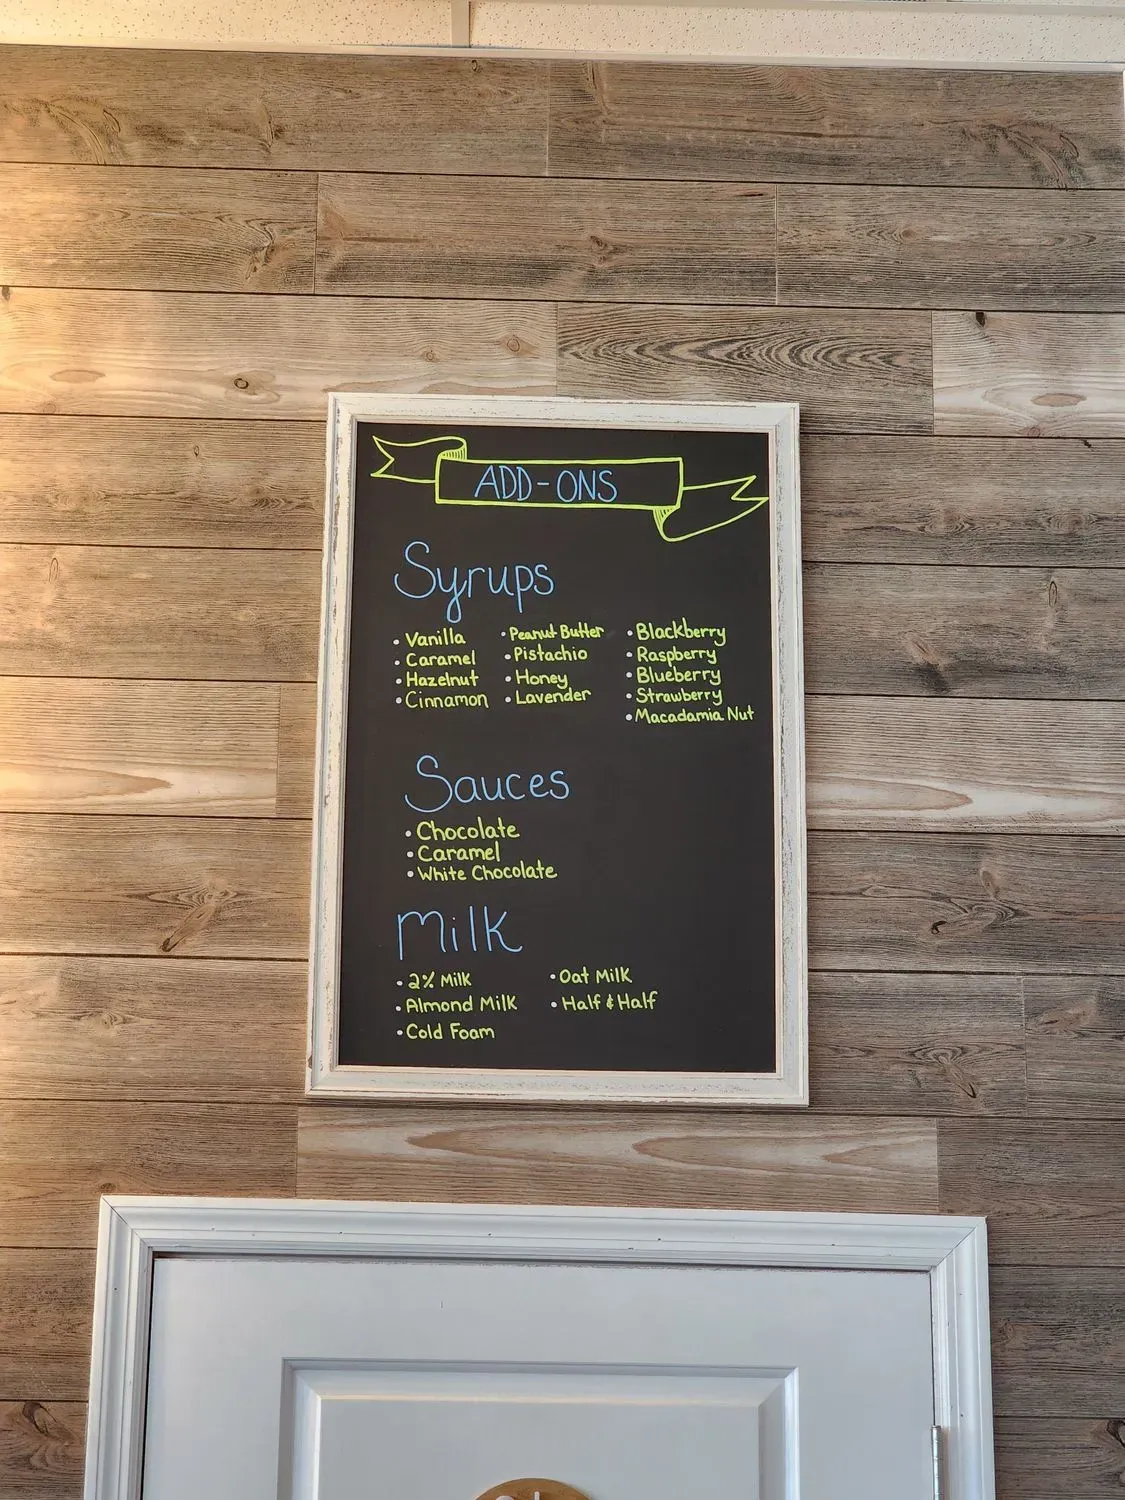 ADD-ONS
Syrups
• Vanilla
• Caramel
• Hazelnut
• Cinnamon
• Peanut Butter
• Pistachio
• Honey
• Lavender
• Blackberry
• Raspberry
• Blueberry
• Strawberry
• Macadamia Nut
Sauces
• Chocolate
• Caramel
• White Chocolate
Milk
• 2% Milk
• Almond Milk
• Cold Foam
• Oat Milk
• Half & Half